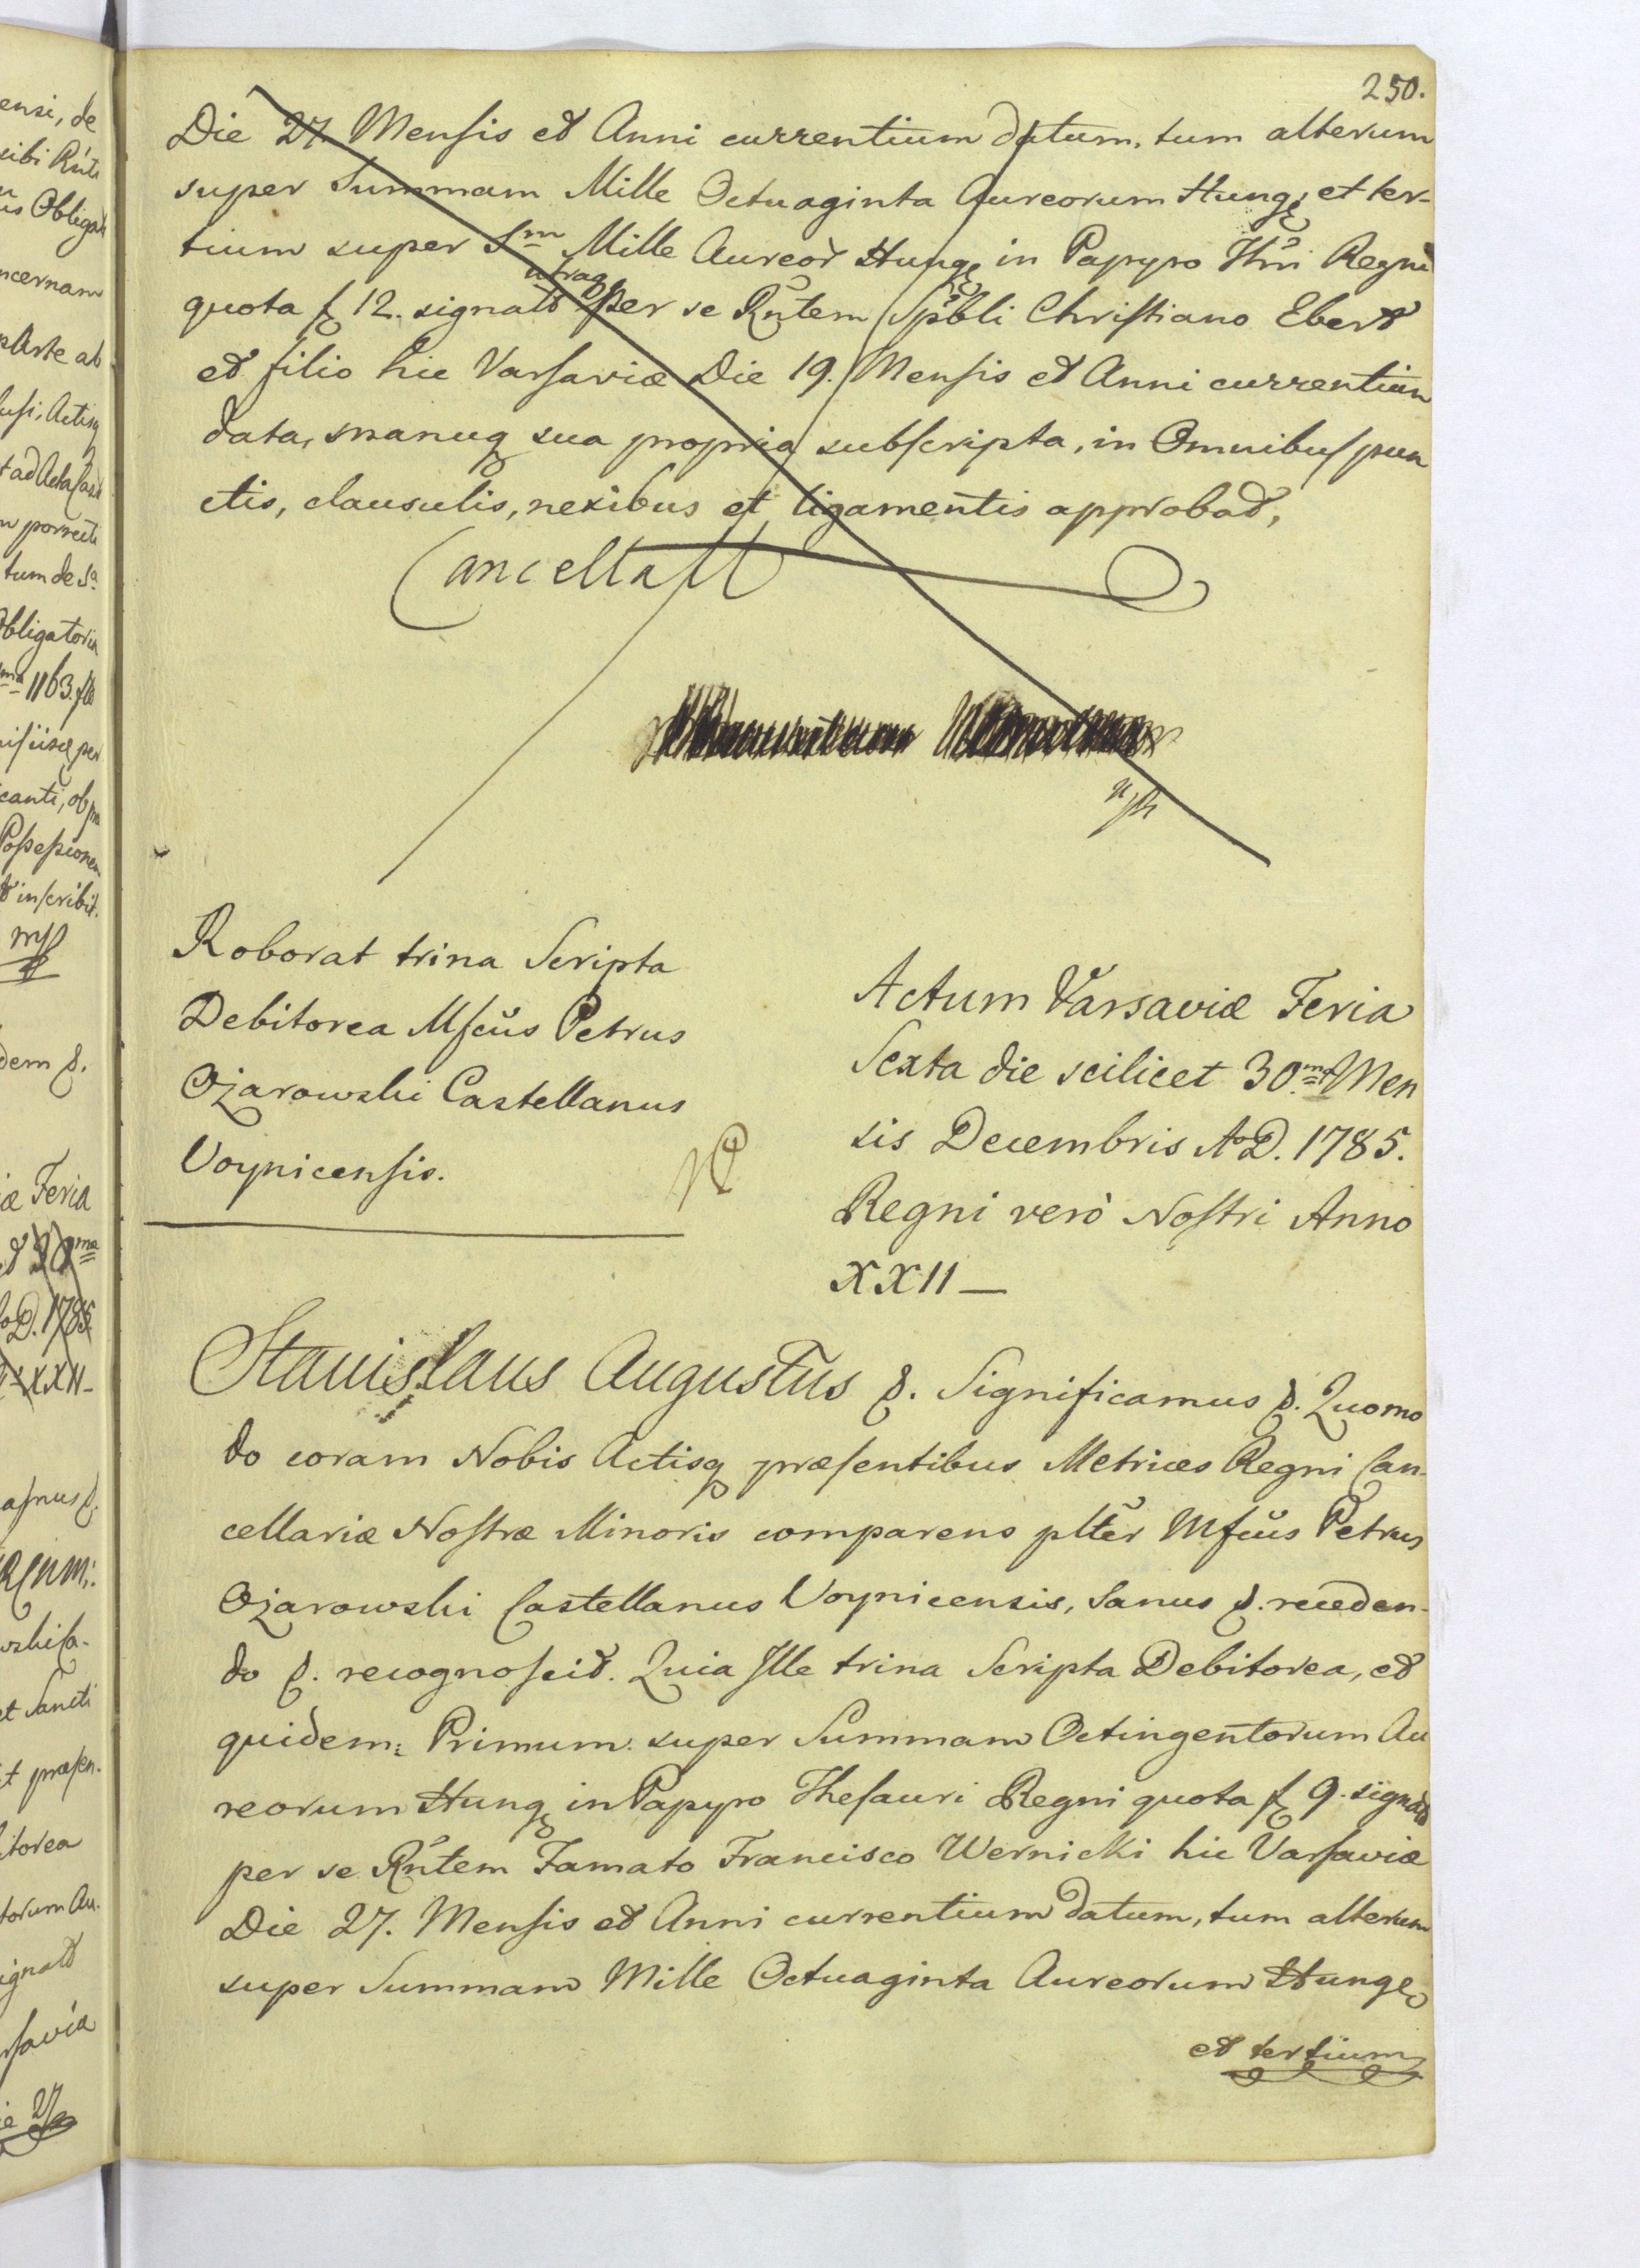 250.
Die 27. Mensis et Anni currentium datum, tum alterum
super Summam Mille Octuaginta Aureorum Hung; et ter-
tium super Sm Mille Aureor Hung in Papyro Thri Regni
quota f 12. signato utraq per se Rntem Spbli Christiano Ebert
et filio hic Varsaviæ Die 19. Mensis et Anni currentium
data, manuq sua propria subscripta, in Omnibus pun
ctis, clausulis, nexibus et ligamentis approbat,
Cancellatt
Roborat trina Scripta
Debitorea Mfcus Petrus
Ożarowski Castellanus
Voynicensis.
Actum Varsaviæ Feria
Sexta die scilicet 30ma Men
sis Decembris AoD. 1785.
Regni verò Nostri Anno
XXII—
Stanislaus Augustus &. Significamus &. Quomo
do coram Nobis Actisq præsentibus Metrices Regni Can-
cellariæ Nostræ Minoris comparens plter Mfcus Petrus
Ożarowski Castellanus Voynicensis, Sanus &. receden-
do &. recognoscit. Quia Ille trina Scripta Debitorea, et
quidem: Primum super Summam Octingentorum Au
reorum Hung in Papyro Thesauri Regni quota f 9. signato
per se Rntem Famato Francisco Wernicki hic Varsaviæ
Die 27. Mensis et Anni currentium datum, tum alterum
super Summam Mille Octuaginta Aureorum Hung
et tertium
ensi, de
sibi Rnte
Obligat
ncernam
parte ab
Actisq
porrecti
tum de Sa
Obligatoria
1163. fl
canti, ob
Possessionem
inscribit.
mp
dem &.
æ Feria
AoD. 1785
XXII-
wski Ca-
et Sancti
et præsen-
itorea
torum Au-
ignato
rsavia
ie 27